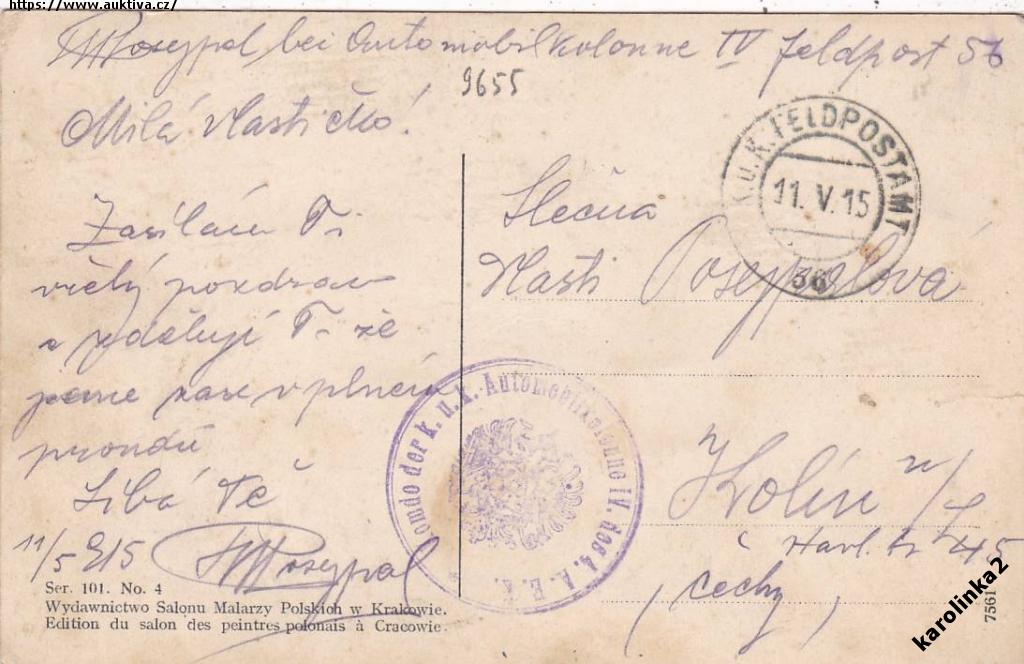 https://www.auktiva.cz/
Posejpal bei Automobilkolonne IV Feldpost 56
9655
Milá Vlastičko!
Zasílám Ti
vřelý pozdrav
a sděluji Ti že
jsme zase v plném
proudu
Líbá Tě
11/5 915 Posejpal
Slečna
Vlasti Posejpalová
Kolín n/L
Havl. 45
(Čechy)
K.u.K. FELDPOSTAMT
11. V. 15
36
Kommando der k. u. k. Automobilkolonne IV. des 4. A. E. K.
Ser. 101. No. 4
Wydawnictwo Salonu Malarzy Polskich w Krakowie.
Edition du salon des peintres polonais à Cracowie.
7561
karolinka2